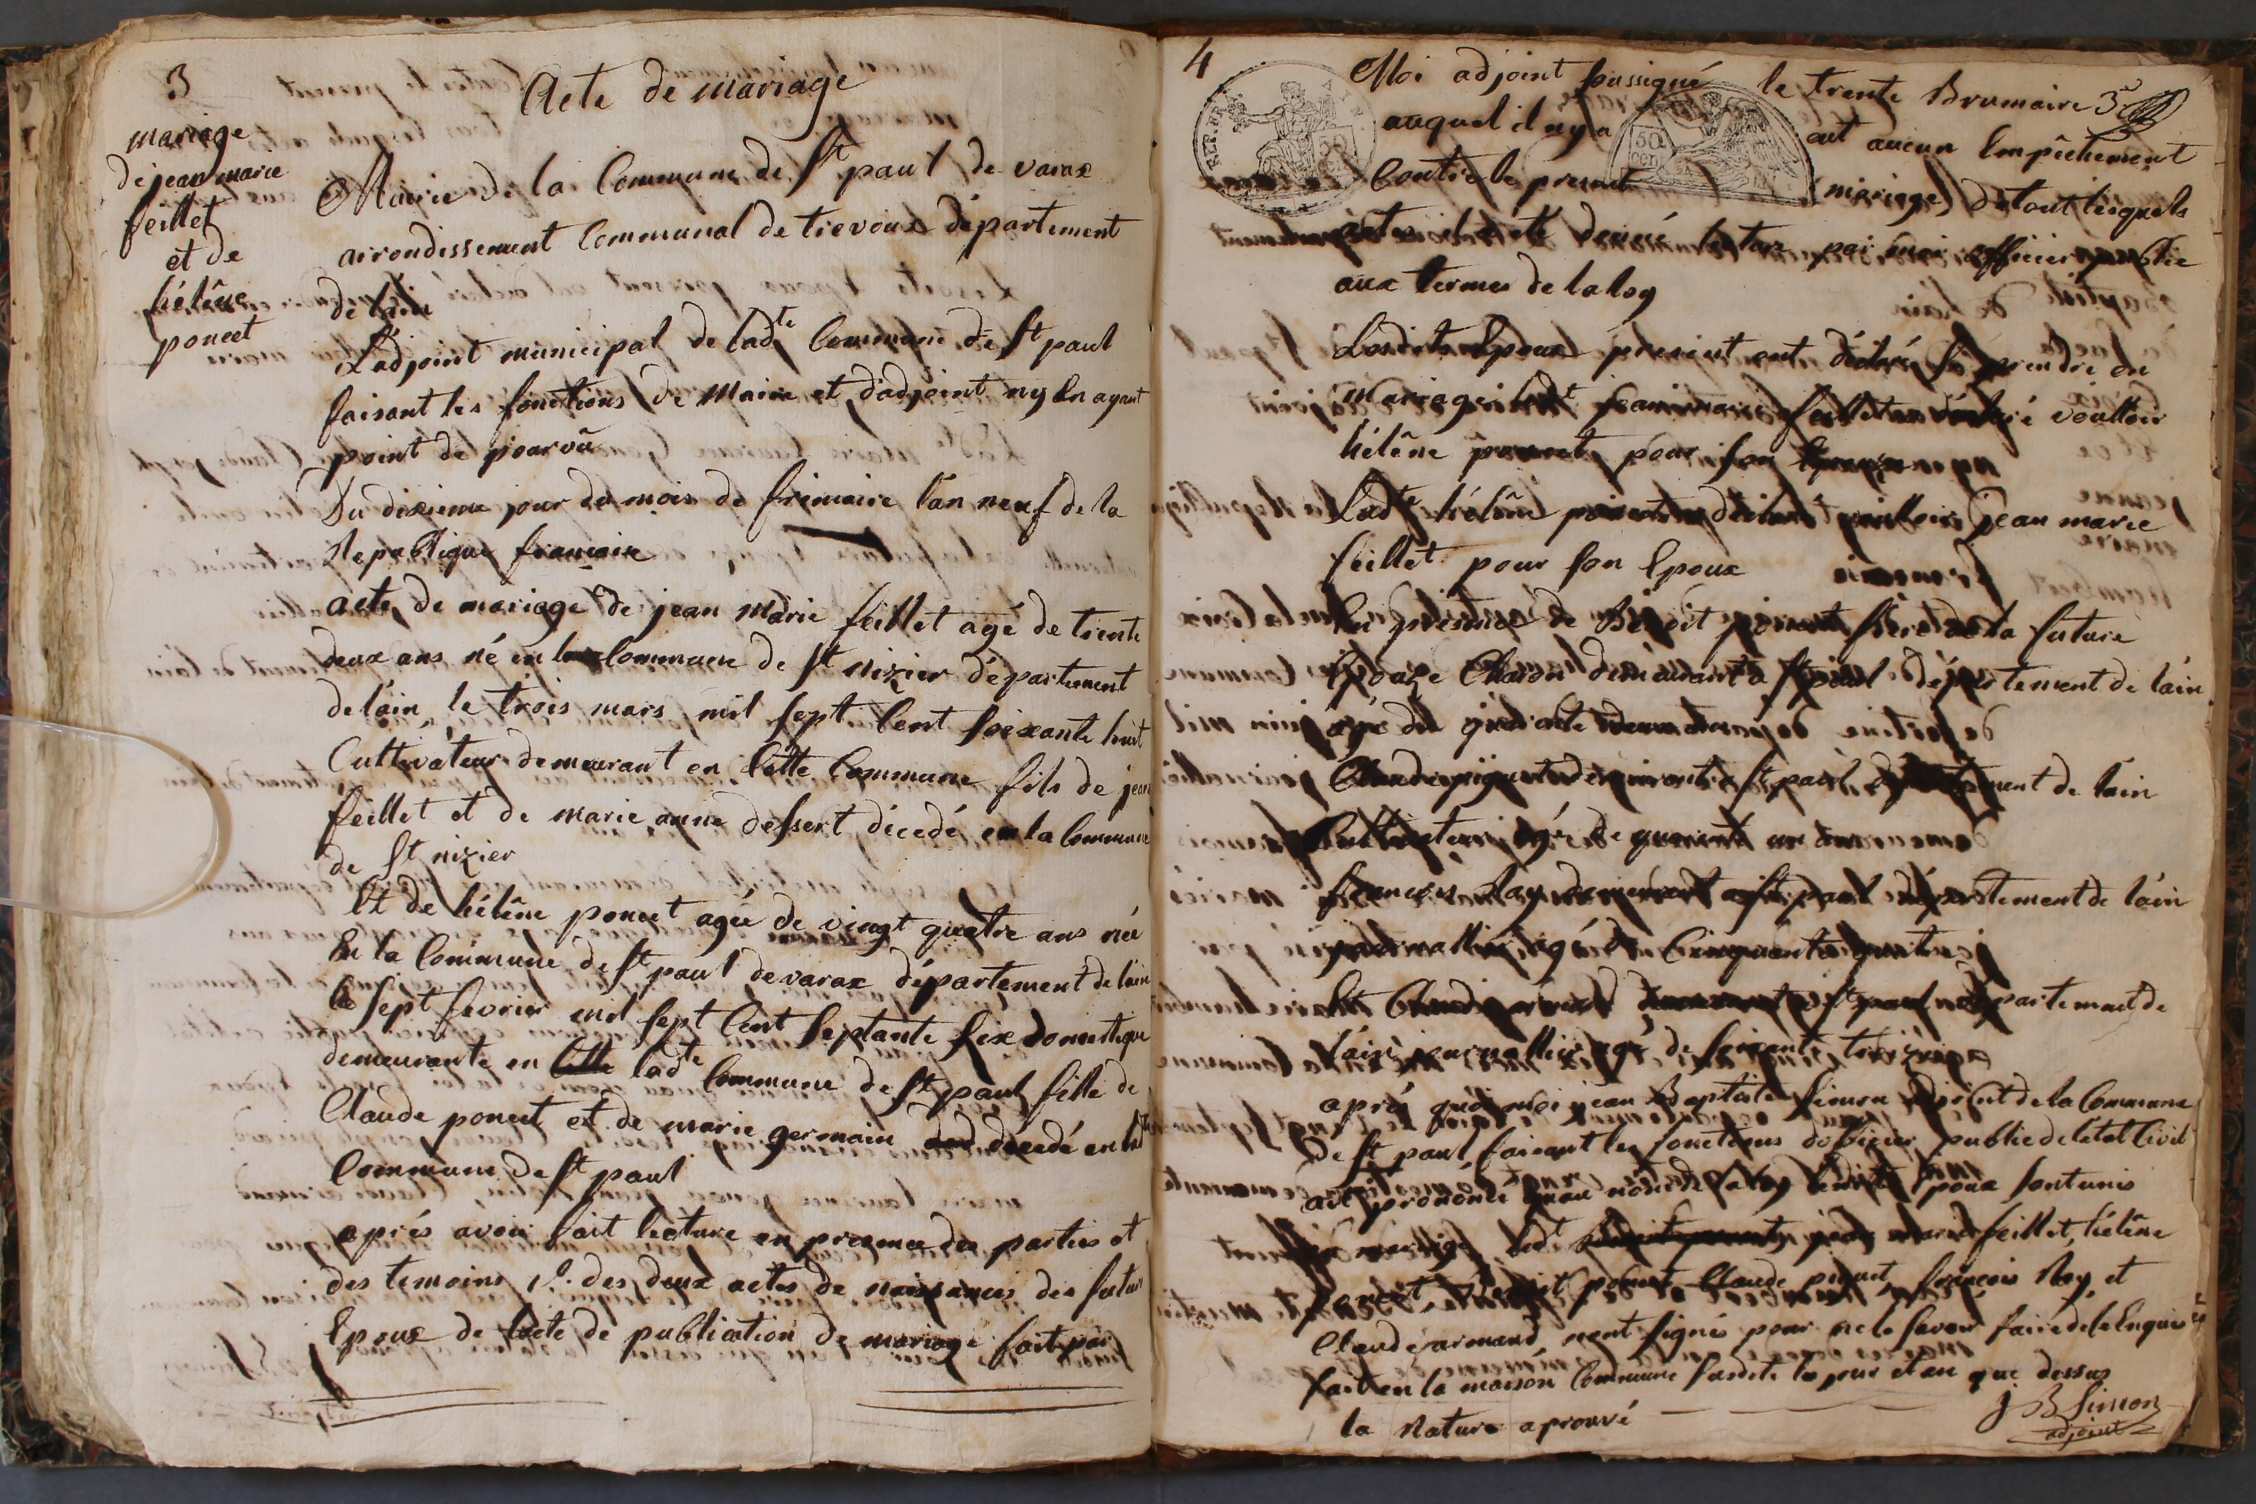 3
Acte de mariage
mariage
de jean marie
feillet
et de
hélêne
poncet
Mairie de la Commune de St paul de varax
arrondissement Communal de trevoux département
de lain
L'adjoint municipal de ladte Commune de St paul
faisant les fonctions de Maire et d'adjoint ny En ayant
point de pourvû
Du dixieme jour du mois de frimaire l'an neuf de la
Republique francaise
acte de mariage de jean Marie feillet agé de trente
deux ans né en la Commune de St nizier département
de lain le trois mars mil sept Cent soixante huit
Cultivateur demeurant en Cette Commune fils de jean
feillet et de marie anne dessert décedé en la Commune
de St nizier
Et de hélêne poncet agée de vingt quatre ans née
En la Commune de St paul de varax département de lain
le sept fevrier mil sept Cent septante six domestique
demeurante en ladte Commune de St paul fille de
Claude poncet et de marie germain décedé en
Commune de St paul
aprés avoir fait lecture en presence des parties et
des temoins 1°. des deux actes de naissances des futur
Epoux de lacte de publication de mariage fait par
4
Moi adjoint sussigné le trente Brumaire
auquel il ny a eut aucun Empêchement
Contre le present mariage, de tout lesquels
actes il a été donné lecture par moi officier public
aux termes de la loy
Lesdits Epoux present ont déclaré se prendre en
Mariage ledt jean marie feillet a déclaré voulloir
hélêne poncet pour son Epouze
Ladte hélêne poncet a déclaré voulloir jean marie
feillet pour son Epoux
En présence de Benoit poncet frére de la future
Epouze Charon demeurant a St paul département de lain
agé de quarante deux ans
Claude piquet demeurant a St paul département de lain
Cultivateur agé de quarante un ans
francois Ray demeurant a St paul département de lain
journallier agé de Cinquante quatre
Et Claude armand demeurant a St paul département de
lain journallier agé de soixante treize
aprés quoi moi jean Baptiste Simon adjoint de la Commune
de St paul faisant les fonctions dofficier public de letat Civil
ait prononcé quau nom de la loy lesdits Epoux sont unis
en mariage, ledt jean marie feillet, hélêne
poncet Benoit poncet Claude piquet, francois Ray, et
Claude armand nont signés pour ne le savoir faire de ce Enquis
fait en la maison Commune susdite le jour et an que dessus
la Rature aprouvé
J B Simon
adjoint
REP. FRA.
50
cen